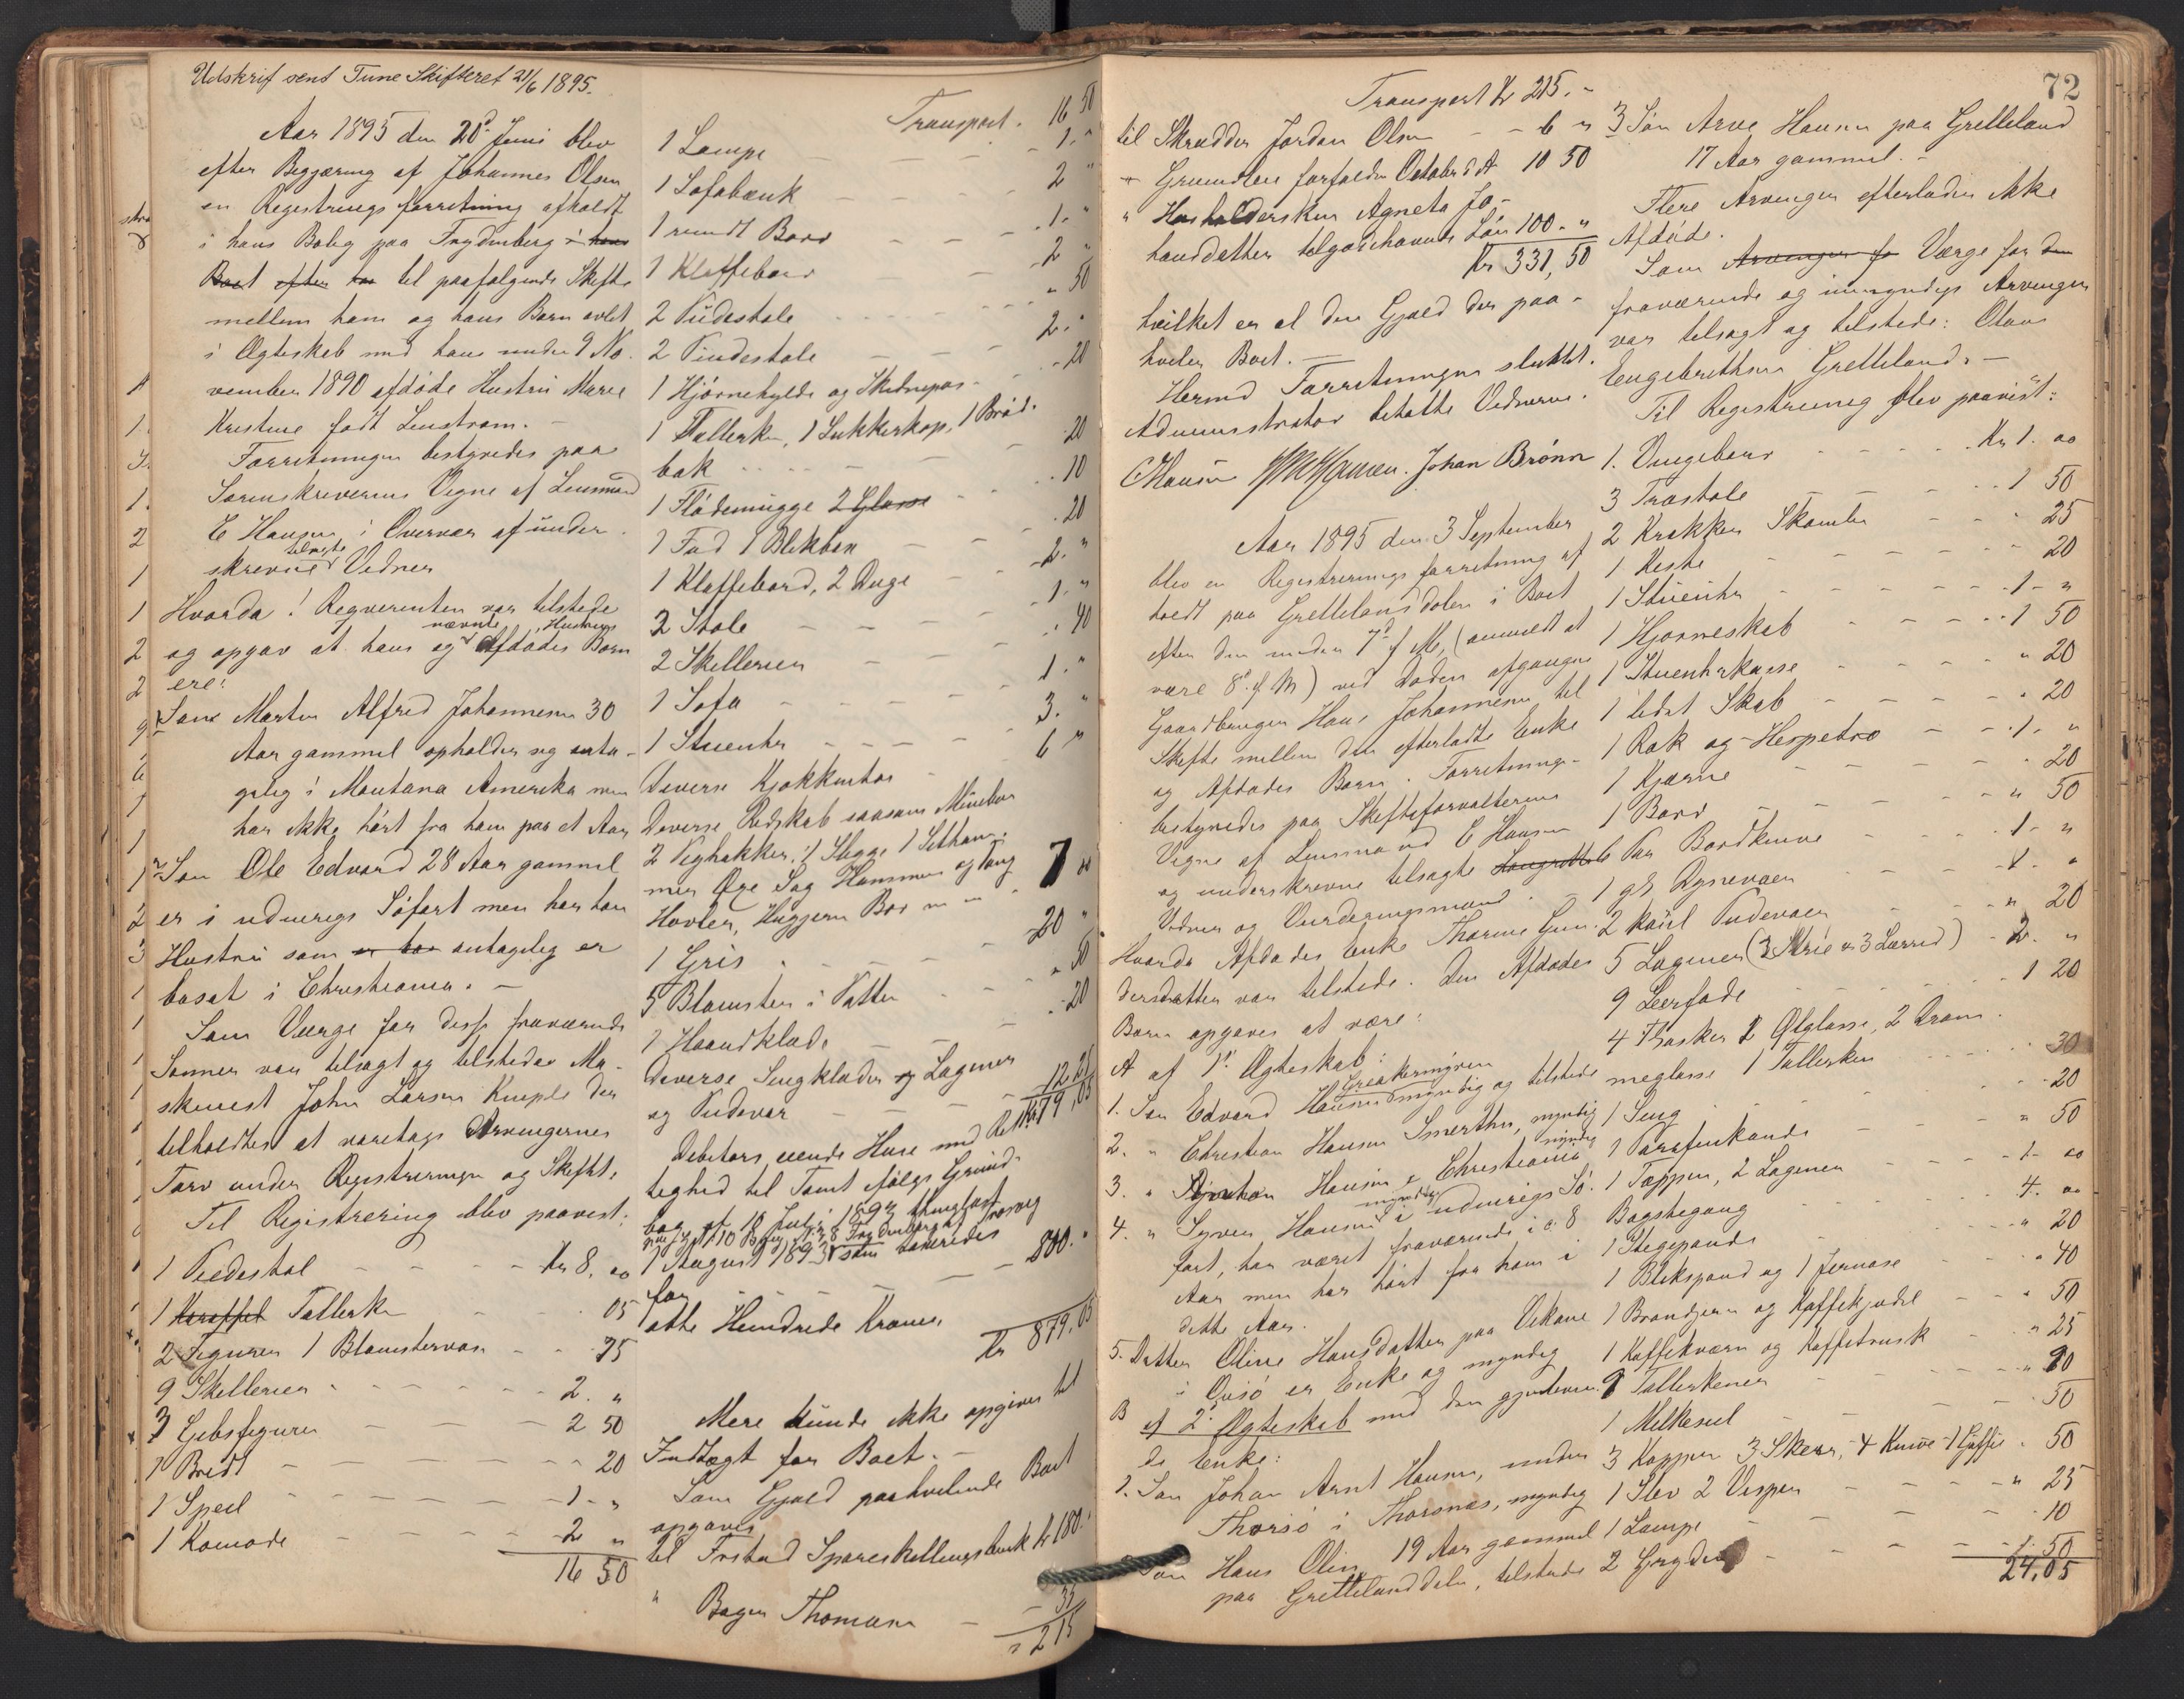 Udskrif sendt Tune Skifteret 21/6 1895.
Aar 1895 den 20d Juni blev
efter Begjæring af Johannes Olsen
en Registreringsforretning afholdt
i hans Bolig paa Frydenberg i hans
Boet efter han til paafølgende Skifte
mellem ham og hans Børn avlet
i Ægteskab med hans under 9 No-
vember 1890 afdøde Hustru Marie
Kristine født Lenstrøm. -
Forretningen bestyredes paa
Sorenskriverens Vegne af Lensmand
E Hansen i Overvær af under-
tilsagte
skrevne Vidner
Hvorda! Reqvirenten var tilstede
nævnte Hustrus
og opgav at hans og Afdødes Børn
ere:
1 Søn Martin Alfred Johannesen 30
Aar gammel opholder sig anta-
gelig i Montana Amerika men
har ikke hørt fra ham paa et Aar
2 Søn Ole Edvard 28 Aar gammel
er i udenrigs Søfart men har han
Hustru som er bo antagelig er
bosat i Christiania. -
Som Værge for disse fraværende
Sønner var tilsagt og tilstede Ma-
skinist John Larsen Kneple der
tilholdtes at varetage Arvingernes
Tarv under Registreringen og Skiftet.
Til Registrering blev paavist:
1 Piedestal - - - Kr 8. 00
1 Karaffel Tallerken - - 05
2 Figurer 1 Blomstervase - - 75
9 Skillerier - - - 2. "
3 Gibsfigurer - - 2 50
1 Bredt - - - 20
1 Speil - - - 1 - "
1 Komode - - - 2 "
16 50
Transport. 16 50
1 Lampe - - - 1. "
1 Sofabænk - - - 2 "
1 rundt Bord - - - 1. "
1 Klaffebord - - - 2 "
2 Pindestole - - - " 50
2 Pindestole - - - 2. "
1 Hjørnehylde og - 20
1 Tallerken, 1 Sukkerkop, 1 Brød-
bak - - - 20
1 Flødemugge 2 Glasse - - 10
1 Fad 1 Blikbox - - 20
1 Klaffebord, 2 Duge - - 2. "
2 Stole - - - 1. "
2 Skillerier - - - " 40
1 Sofa - - - 1. "
1 Stueuhr - - - 3. "
Diverse Kjøkkentøi - 6 "
Diverse Redskab saasom Minebor
2 Veghakker, 1 Slegge 1 Setham-
mer Øxe Sag Hammer og Tang
Høvler, Huggjern Bor m m - 7 00
1 Gris - - - 20 "
5 Blomster i Potter - - " 50
1 Haandklæde - - - 20
Diverse Sengklæder og Lagener
og Pudevar - - - 12 25
79,05
Debitors eiende Huse med Rettig-
tighed til Tomt ifølge Grund-
brev af 18 Juli 1893 thinglæst
1 August 1893 som taxeredes
for - - - 800. "
otte Hundrede Kroner.
Kr 879.05
Mere kunde ikke opgives til
Indtægt for Boet. -
Som Gjæld paahvilende Boet
opgaves
til Frstad Spareskillingsbank kr 180. "
" Bager Thomasen - - 35
" 215
72
Transport Kr 215. -
til Skrædder Jordan Olsen - - 6 "
" Grundleie forfalden October d A 10 50
" Husholdersken Agneta Jo-
hansdatter tilgodehavende Løn 100. "
Kr 331,50
hvilket er al den Gjæld der paa-
hviler Boet. -
Hermed Forretningen sluttet.
Administrator betalte Vidnerne.
EHansen Johan Brønn
Aar 1895 den 3 September
blev en Registreringsforretning af
holdt paa Grettelandsdalen i Boet
efter den under 7d f M, (anmeldt at
være 8d f M) ved Døden afgangne
Gaardbruger Hans Johannesen til
Skifte mellem den efterladte Enke
og Afdødes Børn. Forretningen
bestyredes paa Skifteforvalterens
Vegne af Lensmand E Hansen
og underskrevne tilsagte
Vidner og Vurderingsmænd. -
Hvorda Afdødes Enke Thorine Gun-
dersdatter var tilstede. Den Afdødes
Børn opgaves at være:
A af 1s Ægteskab:
Greakermyren
1. Søn Edvard Hansen myndig og tilstede
2. " Christian Hansen Smerthu, myndig
myndig
3. " Hansen i Christiania
myndig
4. " Syver Hansen i udenrigs Sø-
fart, har været fraværende i c. 8
Aar men har hørt fra ham i
dette Aar.
5. Datter Oline Hansdatter paa Vikane
i Onsø er Enke og myndig
B Af 2d Ægteskab med den gjenleven-
de Enke:
1. Søn Johan Arnt Hansen, under
Thorsø i Thorsnes, myndig
Søn Hans Olin, 19 Aar gammel
paa Grettelanddalen, tilstede
3 Søn Arve Hansen paa Gretteland
17 Aar gammel. -
Flere Arvinger efterlader ikke
Afdøde.
Som Arvinger fo Værge for den
fraværende og umyndige Arvinger
var tilsagt og tilstede: Olaus
Engebrethsen Gretteland. -
Til Registrering blev paavist:
1. Vingebord - - - Kr 1. 00
3 Træstole - - - 1 50
2 Krakker Skamler - - " 25
1 Kiste - - - " 20
1 Stueuhr - - - 1 - "
1 Hjørneskab - - - 1 50
1 Stueuhrkasse - - - " 20
1 lidet Skab - - - " 20
1 Rok og Hespetræ - - 1. "
1 Kjærne - - - " 20
1 Bord - - - " 50
Par Bordknive - - - 1 - "
1 gl Dynevaer - - - 1. "
2 Pudevaer - - - " 20
5 Lagener (2 Strie og 3 Lærred) - 2. "
9 Leerfade - - - 1 20
4 Flasker 2 Ølglasse, 2 Dram-
meglasse 1 Tallerken - - 30
1 Seng - - - 20
1 Parafinkande - - - " 50
1 Tæppe, 2 Lagener - - 1 - 00
Bagstegang - - - 4. 00
1 Stegepande - - - " 20
1 Blikspand og 1 Jernøse - - " 40
1 Brandjern og Kaffekjedel - - " 50
1 Kaffekværn og Kaffetrusk - - " 25
9 Tallerkener - - - " 90
1 Melkesil - - - 50
3 Kopper 3 Skeer, 4 Knive 1 Gaffel - 50
1 Slev 2 Visper - - " 25
1 Lampe - - - 10
2 Gryder - - - 1. 50
24,05